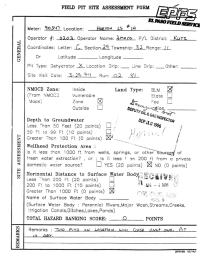 FIELD PIT SITE ASSESSMENT FORM
EPFS
EL PASO FIELD SERVICES
GENERAL
Meter: Location:
Operator #: 0203 Operator Name: Amoco P/L District: Kutz
Coordinates: Letter: Section Township: 32 Range: 11
Or Latitude Longitude
Pit Type: Dehydrator X Location Drip: Line Drip: Other:
Site Visit Date: Run:
SITE ASSESSMENT
NMOCD Zone: Inside Land Type: BLM
(From NMOCD Vulnerable State
Maps) Zone Fee
Outside Indian
Depth to Groundwater
Less Than 50 Feet (20 points)
50 Ft to 99 Ft (10 points)
Greater Than 100 Ft (0 points)
Wellhead Protection Area :
Is it less than 1000 ft from wells, springs, or other sources of
fresh water extraction? , or ; Is it less than 200 ft from a private
domestic water source? YES (20 points) NO (0 points)
Horizontal Distance to Surface Water Body
Less Than 200 Ft (20 points)
200 Ft to 1000 Ft (10 points)
Greater Than 1000 Ft (0 points)
Name of Surface Water Body
(Surface Water Body : Perennial Rivers,Major Wash,Streams,Creeks,
Irrigation Canals,Ditches,Lakes,Ponds)
TOTAL HAZARD RANKING SCORE: 0 POINTS
REMARKS
Remarks :